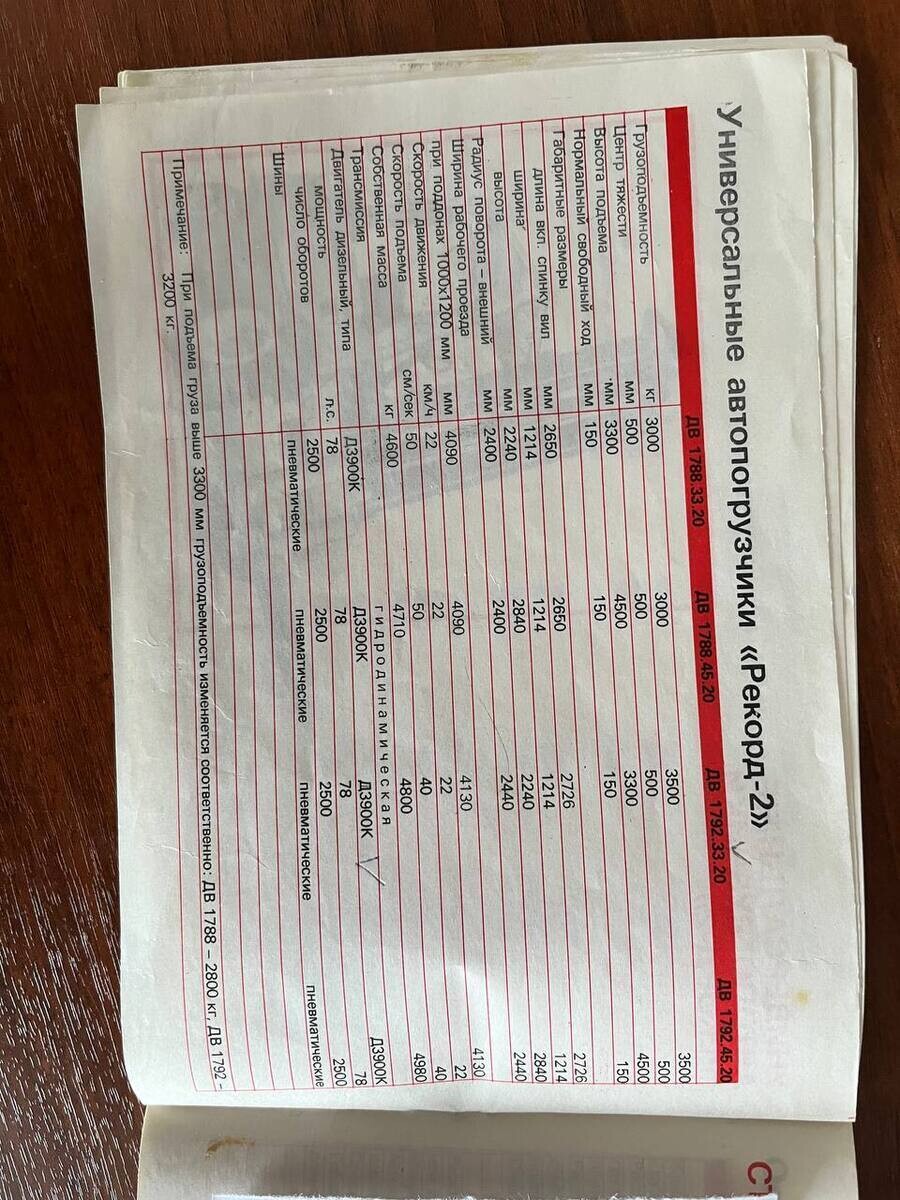 Универсальные автопогрузчики «Рекорд-2»
ДВ 1788.33.20 ДВ 1788.45.20 ДВ 1792.33.20 ДВ 1792.45.20
Грузоподъемность кг 3000 3000 3500 3500
Центр тяжести мм 500 500 500 500
Высота подъема мм 3300 4500 3300 4500
Нормальный свободный ход мм 150 150 150 150
Габаритные размеры
длина вкл. спинку вил мм 2650 2650 2726 2726
ширина мм 1214 1214 1214 1214
высота мм 2240 2840 2240 2840
Радиус поворота – внешний мм 2400 2400 2440 2440
Ширина рабочего проезда
при поддонах 1000x1200 мм мм 4090 4090 4130 4130
Скорость движения км/ч 22 22 22 22
Скорость подъема см/сек 50 50 40 40
Собственная масса кг 4600 4710 4800 4980
Трансмиссия гидродинамическая
Двигатель дизельный, типа Д3900К Д3900К Д3900К Д3900К
мощность л.с. 78 78 78 78
число оборотов 2500 2500 2500 2500
Шины пневматические пневматические пневматические пневматические
Примечание: При подъема груза выше 3300 мм грузоподъемность изменяется соответственно: ДВ 1788 – 2800 кг, ДВ 1792 –
3200 кг.